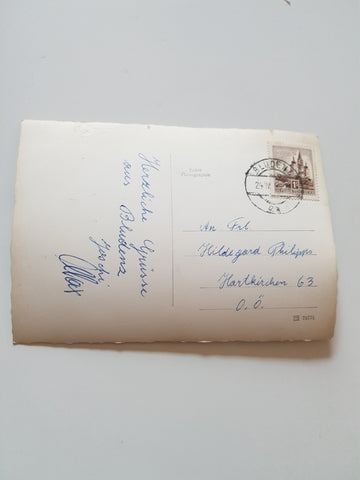 Herzliche Grüsse
aus Bludenz
Joschi
Max
Echte
Photographie
BLUDENZ
An Frl.
Hildegard Philipps
Hartkirchen 63
O.Ö.